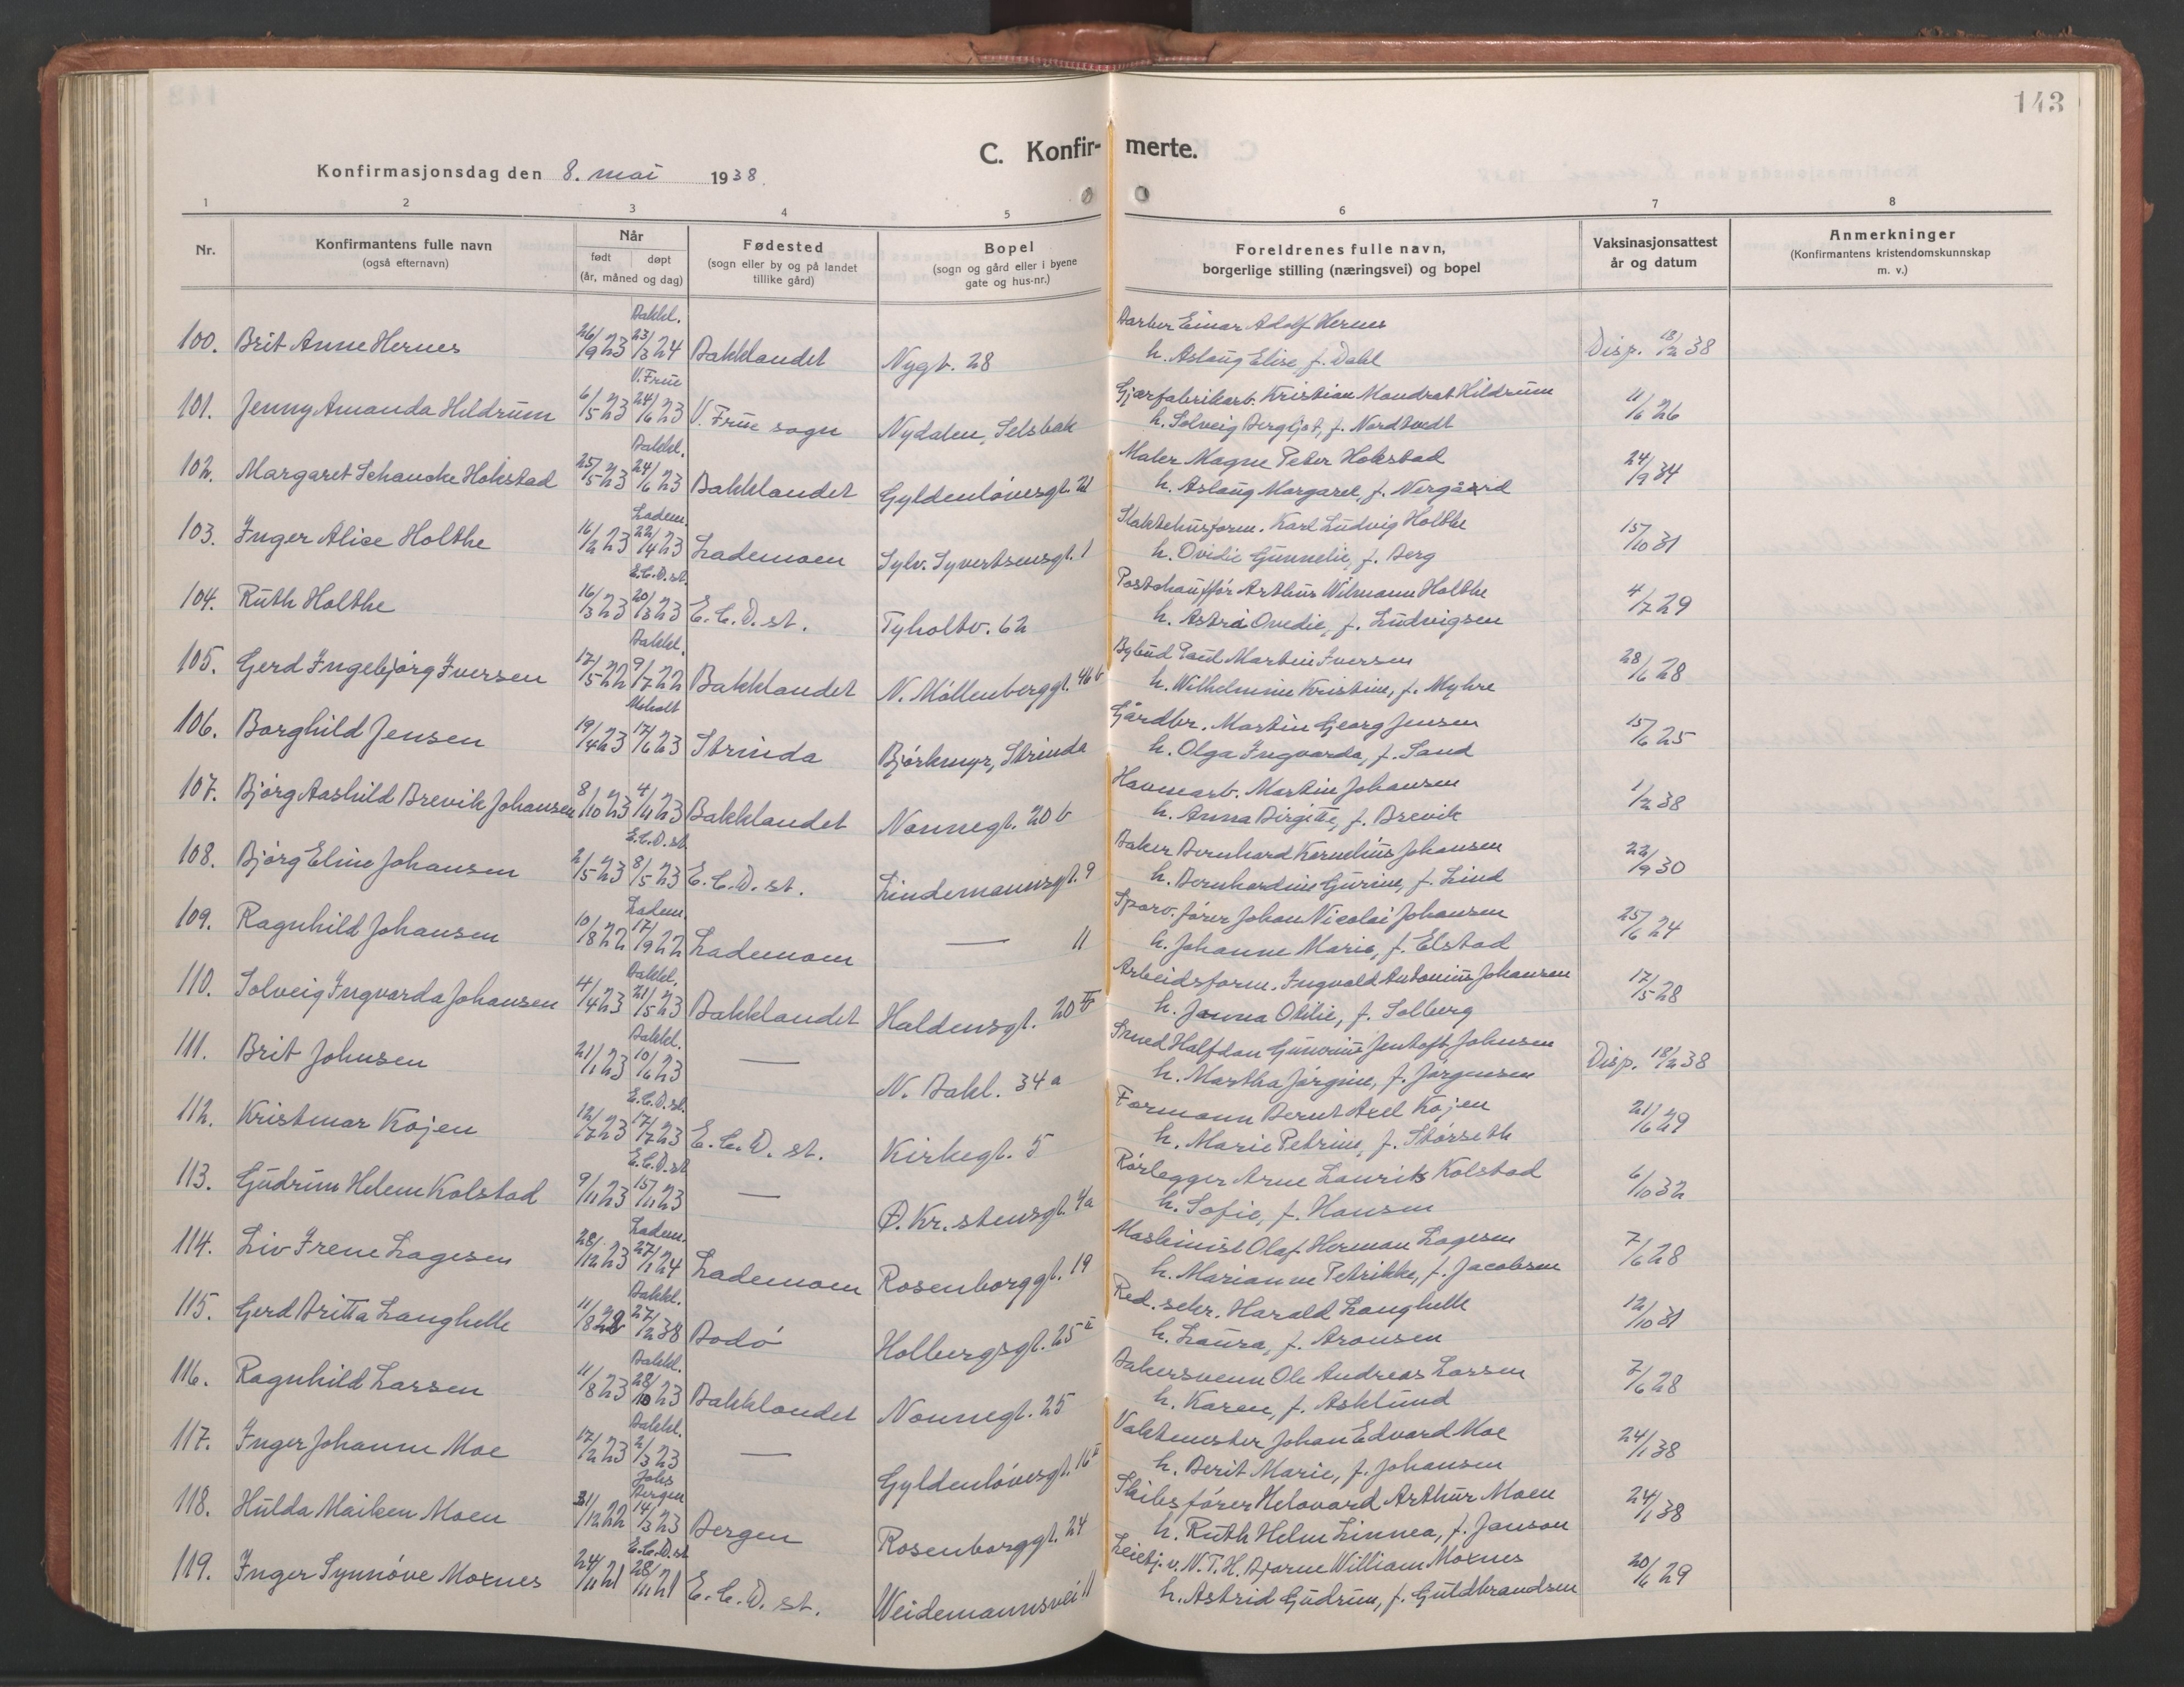 143
C. Konfir- merte.
Konfirmasjonsdag den 8. mai 1938.
1 2 3 4 5 6 7 8
Nr.
Konfirmantens fulle navn
(også efternavn)
Når
født døpt
(år, måned og dag)
Fødested
(sogn eller by og på landet
tillike gård)
Bopel
(sogn og gård eller i byene
gate og hus-nr.)
Foreldrenes fulle navn,
borgerlige stilling (næringsvei) og bopel
Vaksinasjonsattest
år og datum
Anmerkninger
(Konfirmantens kristendomskunnskap
m. v.)
100. Brit Anne Hernes 26/9 23 Bakkl. 23/3 24 Bakklandet Nygt. 28 Barber Einar Adolf Hernes
h. Aslaug Elise f. Dahl Disp. 18/2 38
101. Jenny Amanda Hildrum 6/5 23 V. Frue 24/6 23 V. Frue sogn Nydalen, Selsbak Gjærfabrikarb. Kristian Mondrat Hildrum
h. Solveig Bergljot, f. Nordtvedt 11/6 26
102. Margaret Schancke Hokstad 25/5 23 Bakkl. 24/6 23 Bakklandet Gyldenløvesgt. 21 Maler Magne Peter Hokstad
h. Aslaug Margaret, f. Nergård 24/9 34
103. Inger Alice Holthe 16/2 23 Ladem. 22/4 23 Lademoen Sylv. Syvertsensgt. 1 Slaktehusform. Karl Ludvig Holthe
h. Ovidie Gunnelie, f. Berg 15/10 31
104. Ruth Holthe 16/3 23 E.C.D. st. 20/3 23 E.C.D. st. Tyholtv. 62 Postchauffør Arthur Wilmann Holthe
h. Astri Ovedie, f. Ludvigsen 4/7 29
105. Gerd Ingebjørg Iversen 17/5 22 Bakkl. 9/7 22 Bakklandet N. Møllenberggt. 46 b Bybud Paul Martin Iversen
h. Wilhelmine Kristine, f. Myhre 28/6 28
106. Borghild Jensen 19/4 23 17/6 23 Strinda Bjørkmyr, Strinda Gårdbr. Martin Georg Jensen
h. Olga Ingvarda, f. Sand 15/6 25
107. Bjørg Aashild Brevik Johansen 8/10 23 4/11 23 Bakklandet Nonnegt. 20 b Havnearb. Martin Johansen
h. Anna Birgitte, f. Brevik 1/2 38
108. Bjørg Eline Johansen 2/5 23 E.C.D. st. 8/5 23 E.C.D. st. Lindemannsgt. 9 Baker Bernhard Kornelius Johansen
h. Bernhardine Gurine, f. Lind 22/9 30
109. Ragnhild Johansen 10/8 22 Ladem. 17/9 22 Lademoen — 11 Sporv. fører Johan Nicolai Johansen
h. Johanne Marie, f. Elstad 25/6 24
110. Solveig Ingvarda Johansen 4/4 23 Bakkl. 21/5 23 Bakklandet Haldensgt. 20 IV Arbeidsform. Ingvald Antonius Johansen
h. Janna Otilie, f. Solberg 17/5 28
111. Brit Johnsen 21/1 23 Bakkl. 10/6 23 — N. Bakl. 34 a Smed Halfdan Gunerius Jentoft Johnsen
h. Martha Jørgine, f. Jørgensen Disp. 18/2 38
112. Kristmar Kojen 12/7 23 E.C.D. st. 17/7 23 E.C.D. st. Kirkegt. 5 Formann Bernt Axel Kojen
h. Marie Petrine, f. Størseth 21/6 29
113. Gudrun Helene Kolstad 9/11 23 E.C.D. st 15/11 23 — Ø. Kr. stensgt. 4a Rørlegger Arne Laurits Kolstad
h. Sofie, f. Hansen 6/10 32
114. Liv Irene Lagesen 28/12 23 Ladem. 27/1 24 Lademoen Rosenborggt. 19 Maskinist Olaf Herman Lagesen
h. Marianne Petrikke, f. Jacobsen 7/6 28
115. Gerd Britta Langhelle 11/8 22 Bakkl. 27/2 38 Bodø Holbergsgt. 25 II Red. sekr. Harald Langhelle
h. Laura, f. Aronsen 12/10 31
116. Ragnhild Larsen 11/8 23 Bakkl. 28/10 23 Bakklandet Nonnegt. 25 Bakersvenn Ole Andreas Larsen
h. Karen, f. Asklund 7/6 28
117. Inger Johanne Moe 17/2 23 Bakkl. 2/3 23 — Gyldenløvesgt. 16 II Vaktmester Johan Edvard Moe
h. Berit Marie, f. Johansen 24/1 38
118. Hulda Maiken Moen 31/12 22 Johs Bergen 14/3 23 Bergen Rosenborggt. 24 Skibsfører Helovard Arthur Moen
h. Ruth Helen Linnea, f. Janson 24/1 38
119. Inger Synnøve Moxnes 24/11 21 E.C.D. st 28/11 21 E.C.D. st. Weidemannsvei 11 v. N.T.H. Bjarne William Moxnes
h. Astrid Gudrun, f. Guldbrandsen 20/6 29